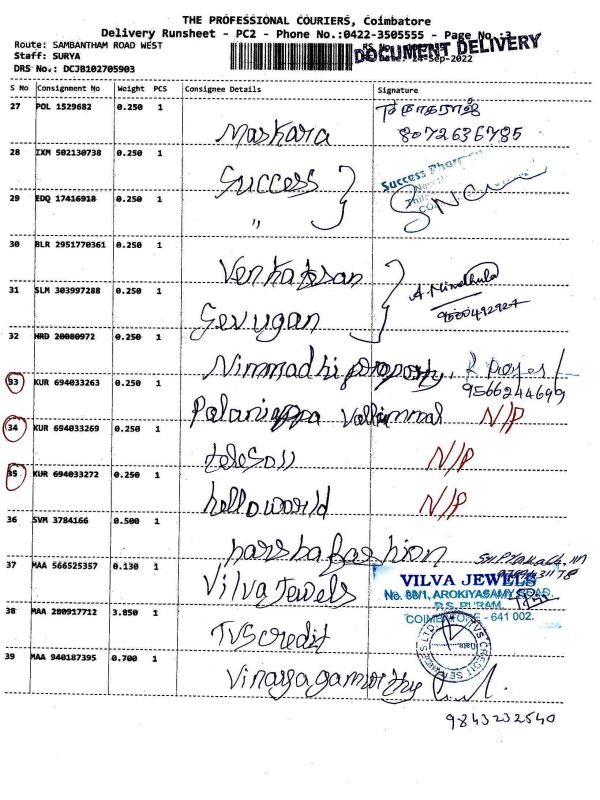 THE PROFESSIONAL COURIERS, Coimbatore
Delivery Runsheet - PC2 - Phone No.:0422-3505555 - Page No.:3
Route: SAMBANTHAM ROAD WEST
DOCUMENT DELIVERY
Staff: SURYA
Date: 24-Sep-2022
DRS No.: DCJB102705903
S No Consignment No Weight PCS Consignee Details Signature
27 POL 1529682 0.250 1
Maskara
8072636785
28 IXM 502130738 0.250 1
Success
Success
29 EDQ 17416918 0.250 1
"
30 BLR 2951770361 0.250 1
Venkatesan
31 SLM 303997288 0.250 1
Sevugan
9500492927
32 HRD 20080972 0.250 1
Nimmadhi property
9566244699
33 KUR 694033263 0.250 1
Palaniappa Valliammal N/P
34 KUR 694033269 0.250 1
telesoss N/P
35 KUR 694033272 0.250 1
helloworld N/P
36 SVM 3784166 0.500 1
harsha fashion
37 MAA 566525357 0.130 1
Vilva Jewels
VILVA JEWELS
No. 88/1, AROKIYASAMY ROAD,
R.S. PURAM,
COIMBATORE - 641 002.
38 MAA 280917712 3.850 1
TVS credit
TVS CREDIT SERVICES LTD
Date
39 MAA 940187395 0.700 1
Vinayagamurthy
9843232540